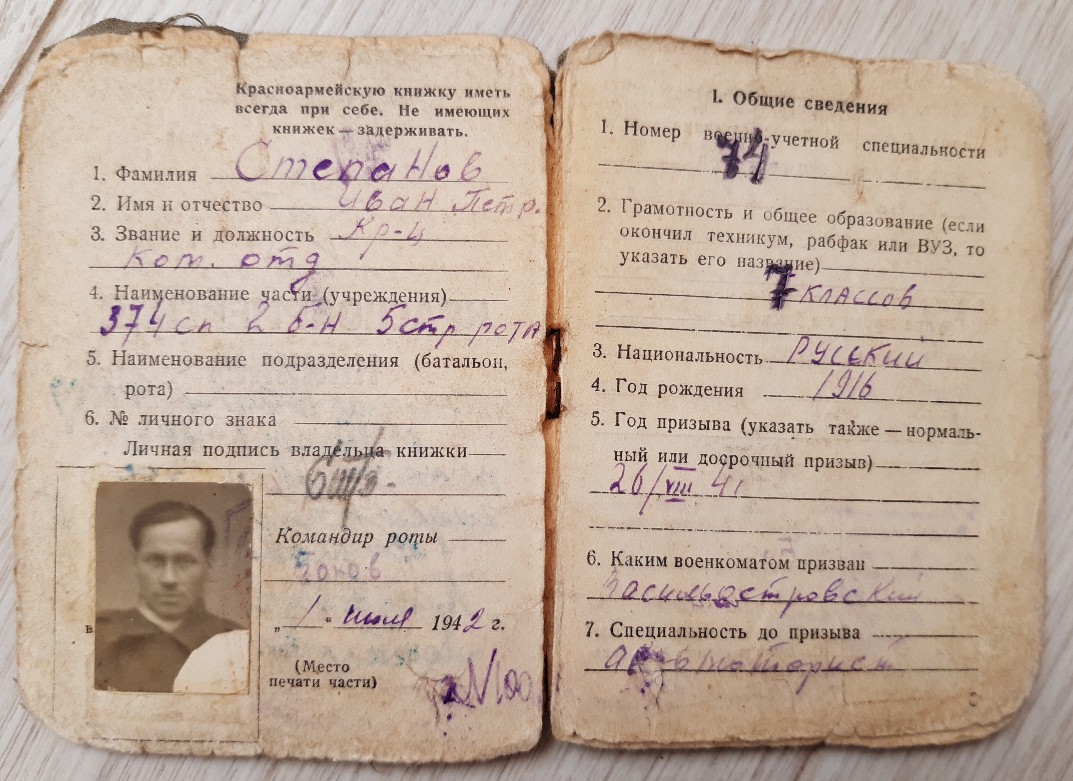 Красноармейскую книжку иметь
всегда при себе. Не имеющих
книжек — задерживать.
1. Фамилия Степанов
2. Имя и отчество Иван Петр.
3. Звание и должность Кр-ц
ком. отд
4. Наименование части (учреждения)
374 сп 2 б-н 5 стр рота
5. Наименование подразделения (батальон,
рота)
6. № личного знака
Личная подпись владельца книжки
Командир роты
„1“ июля 1942 г.
(Место
печати части)
I. Общие сведения
1. Номер военно-учетной специальности
74
2. Грамотность и общее образование (если
окончил техникум, рабфак или ВУЗ, то
указать его название)
7 классов
3. Национальность Русский
4. Год рождения 1916
5. Год призыва (указать также — нормаль-
ный или досрочный призыв)
26/VIII 41
6. Каким военкоматом призван
Василеостровский
7. Специальность до призыва